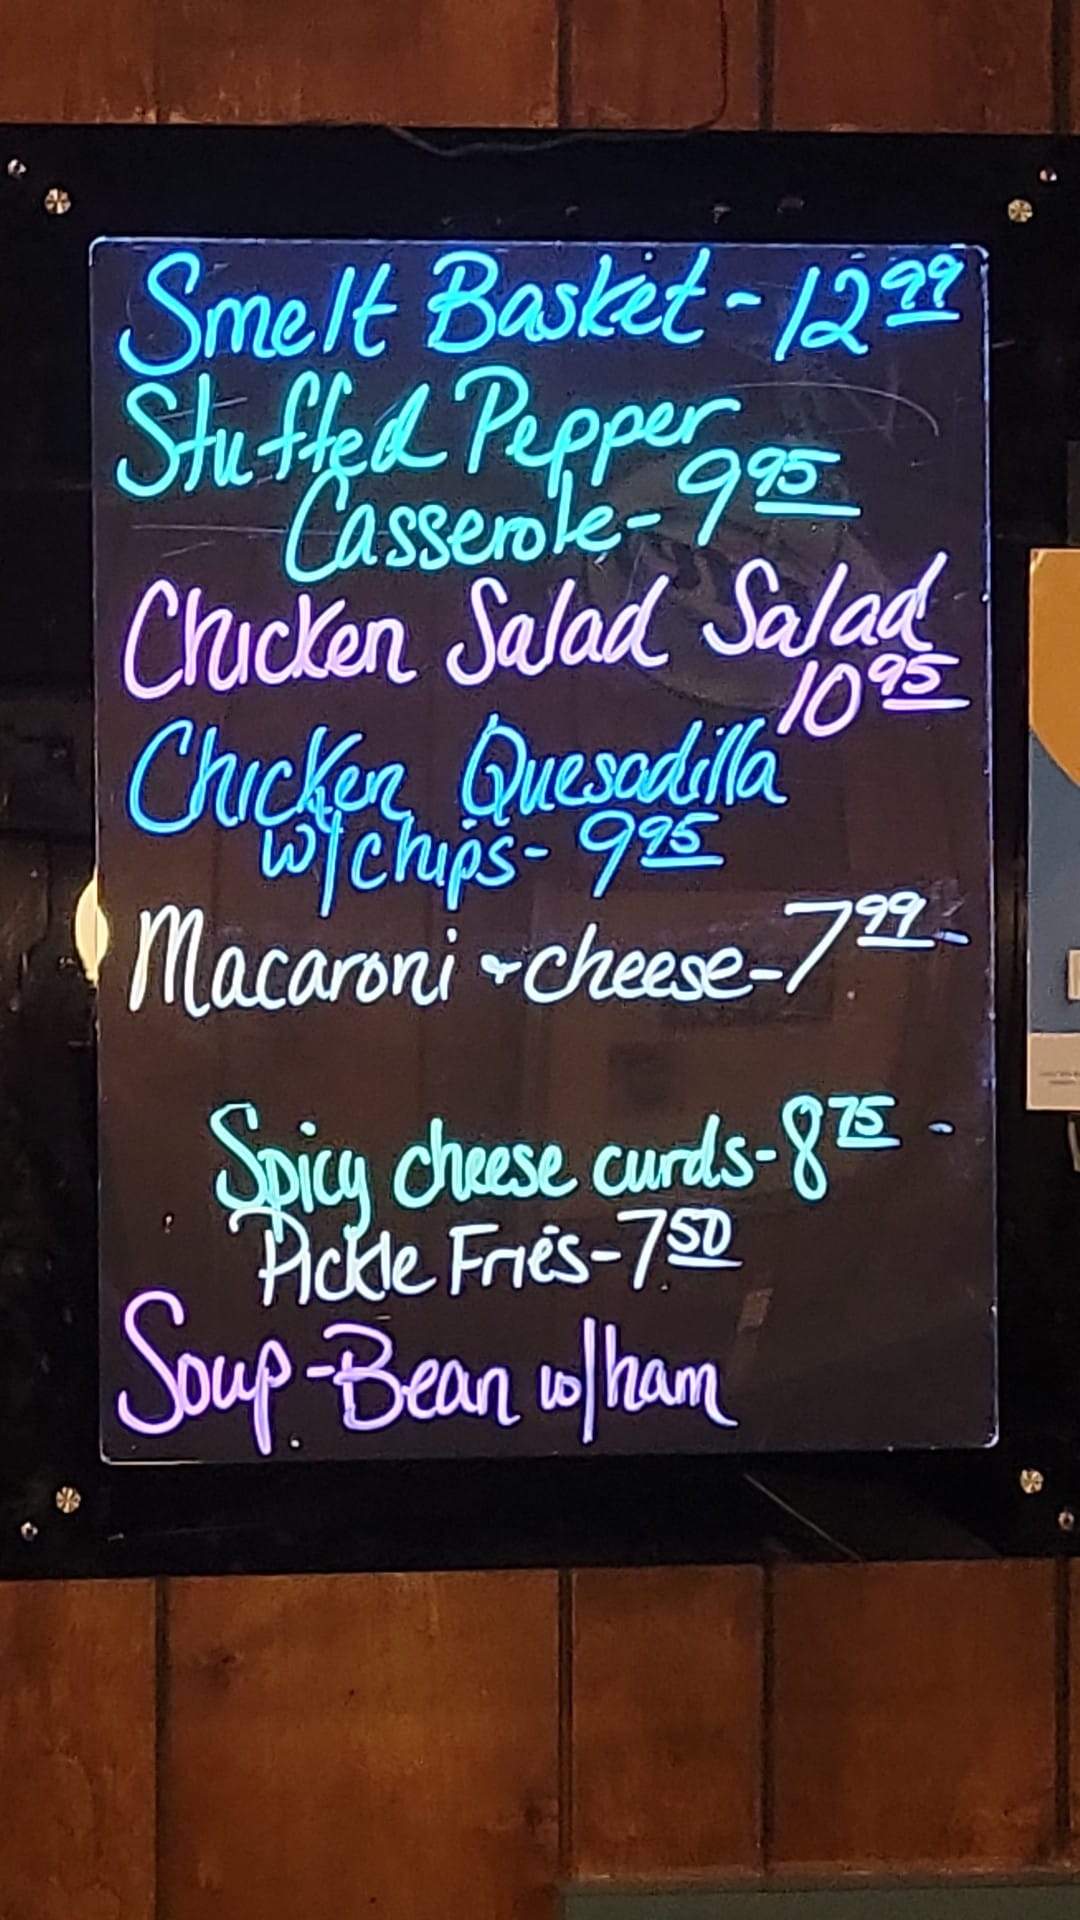 Smelt Basket - 12 99
Stuffed Pepper
Casserole - 9 95
Chicken Salad Salad
10 95
Chicken Quesadilla
w/chips - 9 95
Macaroni + cheese - 7 99
Spicy cheese curds - 8 75
Pickle Fries - 7 50
Soup - Bean w/ham